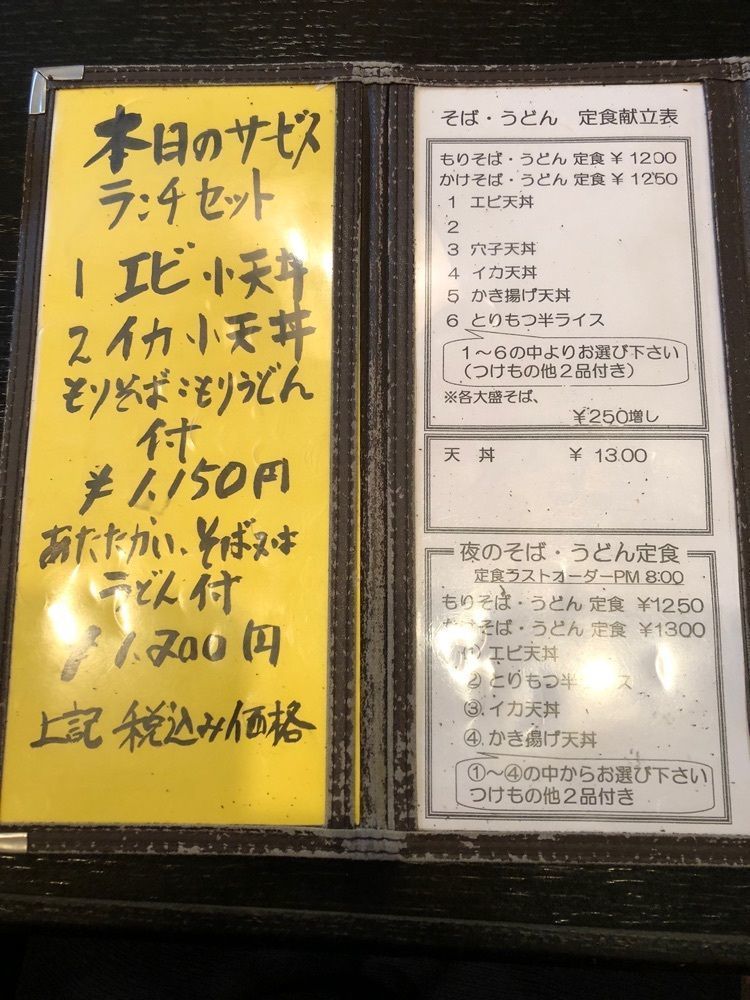 本日のサービス
ランチセット
1 エビ小天丼
2 イカ小天丼
もりそば:もりうどん
付
¥1,150円
あたたかい、そば又は
うどん付
¥1,200円
上記 税込み価格
そば・うどん 定食献立表
もりそば・うどん 定食 ¥1200
かけそば・うどん 定食 ¥1250
1 エビ天丼
2
3 穴子天丼
4 イカ天丼
5 かき揚げ天丼
6 とりもつ半ライス
1〜6の中よりお選び下さい
(つけもの他2品付き)
※各大盛そば、
¥250増し
天 丼 ¥ 1300
夜のそば・うどん定食
定食ラストオーダーPM 8:00
もりそば・うどん 定食 ¥1250
かけそば・うどん 定食 ¥1300
① エビ天丼
② とりもつ半ライス
③.イカ天丼
④.かき揚げ天丼
①〜④の中からお選び下さい
つけもの他2品付き